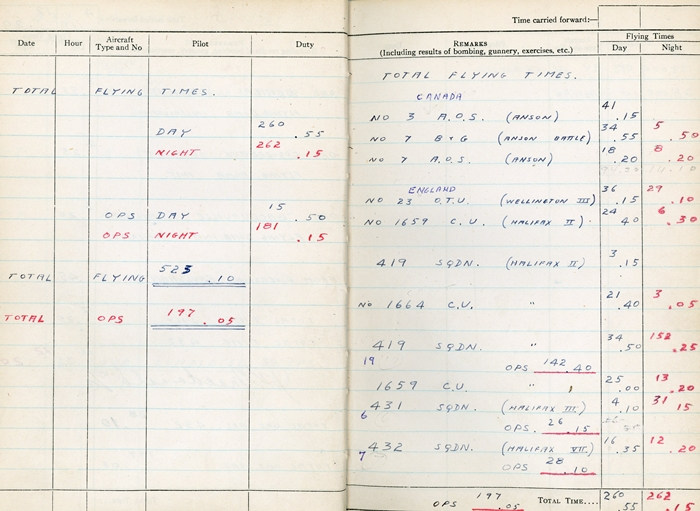 Date Hour Aircraft Type and No Pilot Duty
TOTAL FLYING TIMES.
DAY 260.55
NIGHT 262.15
OPS DAY 15.50
OPS NIGHT 181.15
TOTAL FLYING 523.10
TOTAL OPS 197.05
Time carried forward:—
REMARKS
(Including results of bombing, gunnery, exercises, etc.)
Flying Times
Day Night
TOTAL FLYING TIMES.
CANADA
NO 3 A.O.S. (ANSON) 41.15
NO 7 B+G (ANSON BATTLE) 34.55 5.50
NO 7 A.O.S. (ANSON) 18.20 8.20
ENGLAND
NO 23 O.T.U. (WELLINGTON III) 36.15 29.10
NO 1659 C.U. (HALIFAX II) 24.40 6.30
419 SQDN. (HALIFAX II) 3.15
NO 1664 C.U. " 21.40 3.05
419 SQDN. " 34.50 152.25
19 OPS 142.40
1659 C.U. " 25.00 13.20
431 SQDN. (HALIFAX III.) 4.10 31.15
6 OPS. 26.15
432 SQDN. (HALIFAX VII.) 16.35 12.20
7 OPS 28.10
OPS 197.05 TOTAL TIME.... 260.55 262.15